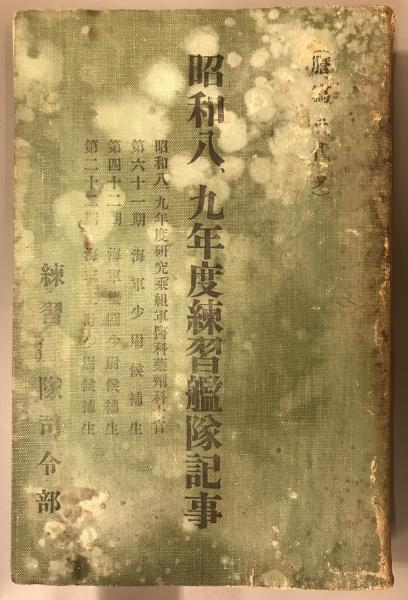 (謄寫ニ代フ)
昭和八、九年度練習艦隊記事
昭和八、九年度研究乘組軍醫科藥劑科士官
第六十一期 海軍少尉候補生
第四十二期 海軍機關少尉候補生
第二十二期 海軍主計少尉候補生
練習艦隊司令部